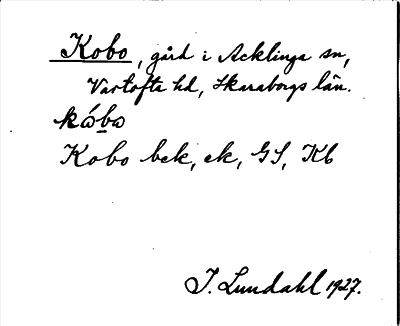 Kobo, gård i Acklinga sn,
Vartofta hd, Skaraborgs län.
kóbo
Kobo bek, ek, GS, Kb
I. Lundahl 1927.